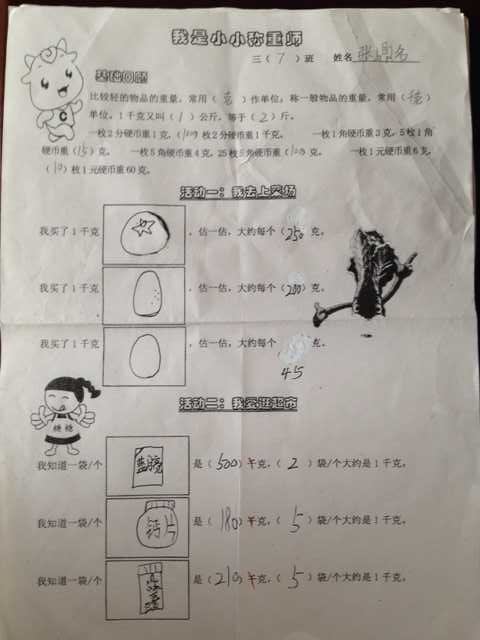 我是小小称重师
三（7）班 姓名
基础回顾
比较轻的物品的重量，常用（克）作单位，称一般物品的重量，常用（）
单位，1千克又叫（1）公斤，等于（2）斤。
一枚2分硬币重1克，（1000）枚2分硬币重1千克。 一枚1角硬币重3克，5枚1角
硬币重（15）克。 一枚5角硬币重4克，25枚5角硬币重（100）克。 一枚1元硬币重6克，
（10）枚1元硬币重60克。
活动一：我去上菜场
我买了1千克 ，估一估，大约每个（250）克。
我买了1千克 ，估一估，大约每个（200）克。
我买了1千克 ，估一估，大约每个 克。
45
活动二：我爱逛超市
糖糖
我知道一袋/个 是（500）千克，（2）袋/个大约是1千克。
我知道一袋/个 钙片 是（180）千克，（5）袋/个大约是1千克。
我知道一袋/个 是（210）千克，（5）袋/个大约是1千克。